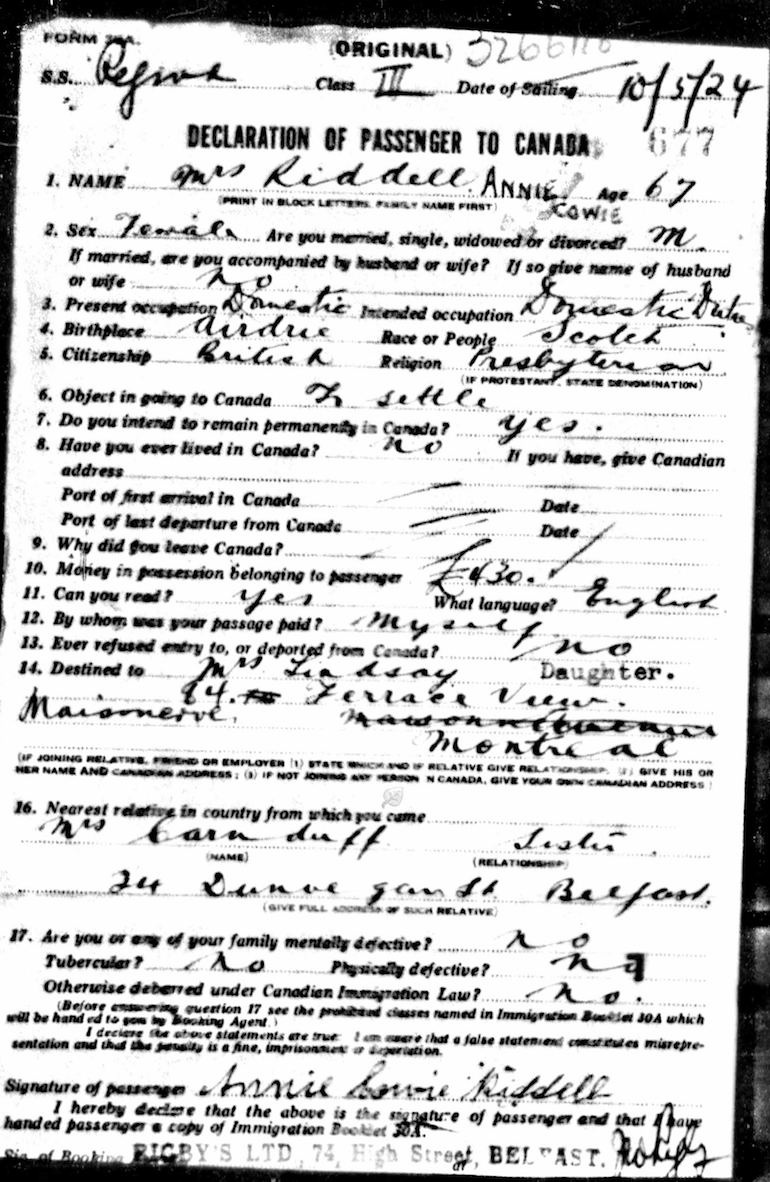 FORM 30A.
(ORIGINAL)
S.S. Regina Class III Date of Sailing 10/5/24
DECLARATION OF PASSENGER TO CANADA 677
1. NAME Mrs Riddell. ANNIE Age 67
(PRINT IN BLOCK LETTERS, FAMILY NAME FIRST) COWIE
2. Sex Female Are you married, single, widowed or divorced? M.
If married, are you accompanied by husband or wife? If so give name of husband
or wife no
3. Present occupation Domestic Intended occupation Domestic Duties
4. Birthplace Airdrie Race or People Scotch
5. Citizenship British Religion Presbyterian
(IF PROTESTANT, STATE DENOMINATION)
6. Object in going to Canada To settle
7. Do you intend to remain permanently in Canada? yes.
8. Have you ever lived in Canada? no If you have, give Canadian
address
Port of first arrival in Canada Date
Port of last departure from Canada Date
9. Why did you leave Canada?
10. Money in possession belonging to passenger £430.
11. Can you read? yes What language? English
12. By whom was your passage paid? Myself
13. Ever refused entry to, or deported from Canada? no
14. Destined to Mrs Lindsay Daughter.
94. Terrace View.
Maisonerve.
Montreal
(IF JOINING RELATIVE, FRIEND OR EMPLOYER (1) STATE WHICH AND IF RELATIVE GIVE RELATIONSHIP; (2) GIVE HIS OR
HER NAME AND CANADIAN ADDRESS; (3) IF NOT JOINING ANY PERSON IN CANADA, GIVE YOUR OWN CANADIAN ADDRESS)
16. Nearest relative in country from which you came
Mrs Carnduff Sister.
(NAME) (RELATIONSHIP)
24 Dunvegan St. Belfast.
(GIVE FULL ADDRESS OF SUCH RELATIVE)
17. Are you or any of your family mentally defective? no
Tubercular? No Physically defective? no
Otherwise debarred under Canadian Immigration Law? no.
(Before answering question 17 see the prohibited classes named in Immigration Booklet 30A which
will be handed to you by Booking Agent.)
I declare the above statements are true: I am aware that a false statement constitutes misrepre-
sentation and that the penalty is a fine, imprisonment or deportation.
Signature of passenger Annie Cowie Riddell
I hereby declare that the above is the signature of passenger and that I have
handed passenger a copy of Immigration Booklet 30A.
Sig. of Booking RIGBY'S LTD, 74, High Street, at BELFAST.